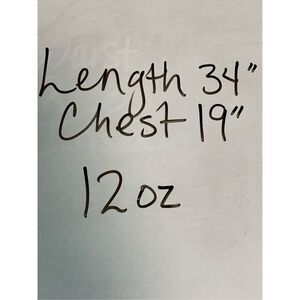 Length 34"
Chest 19"
12 oz